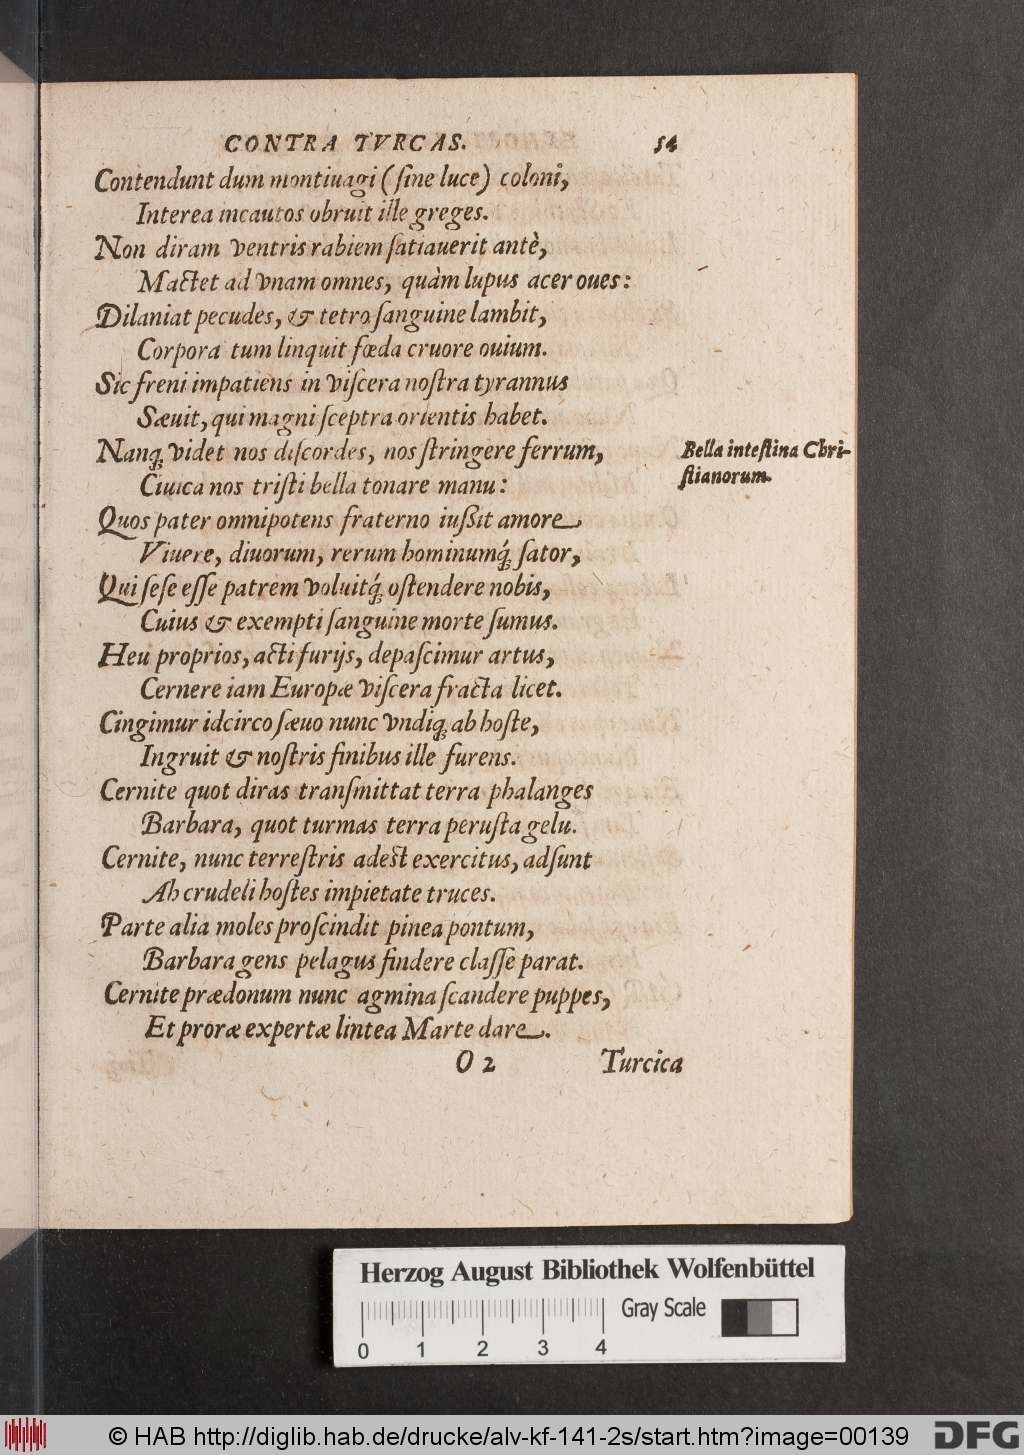 CONTRA TVRCAS. 54
Contendunt dum montiuagi (ſine luce) coloni,
Interea incautos obruit ille greges.
Non diram ventris rabiem ſatiauerit antè,
Mactet ad vnam omnes, quàm lupus acer oues:
Dilaniat pecudes, & tetro ſanguine lambit,
Corpora tum linquit fœda cruore ouium.
Sic freni impatiens in viſcera noſtra tyrannus
Sæuit, qui magni ſceptra orientis habet.
Nanq; videt nos diſcordes, nos ſtringere ferrum,
Bella inteſtina Chri-
ſtianorum.
Ciuica nos triſti bella tonare manu:
Quos pater omnipotens fraterno iußit amore
Viuere, diuorum, rerum hominumq́; ſator,
Qui ſeſe eſſe patrem voluitq́; oſtendere nobis,
Cuius & exempti ſanguine morte ſumus.
Heu proprios, acti furijs, depaſcimur artus,
Cernere iam Europæ viſcera fracta licet.
Cingimur idcirco ſæuo nunc vndiq; ab hoſte,
Ingruit & noſtris finibus ille furens.
Cernite quot diras tranſmittat terra phalanges
Barbara, quot turmas terra peruſta gelu.
Cernite, nunc terreſtris adest exercitus, adſunt
Ah crudeli hoſtes impietate truces.
Parte alia moles proſcindit pinea pontum,
Barbara gens pelagus findere claſſe parat.
Cernite prædonum nunc agmina ſcandere puppes,
Et proræ expertæ lintea Marte dare.
O 2 Turcica
Herzog August Bibliothek Wolfenbüttel
Gray Scale
0 1 2 3 4
© HAB http://diglib.hab.de/drucke/alv-kf-141-2s/start.htm?image=00139
DFG